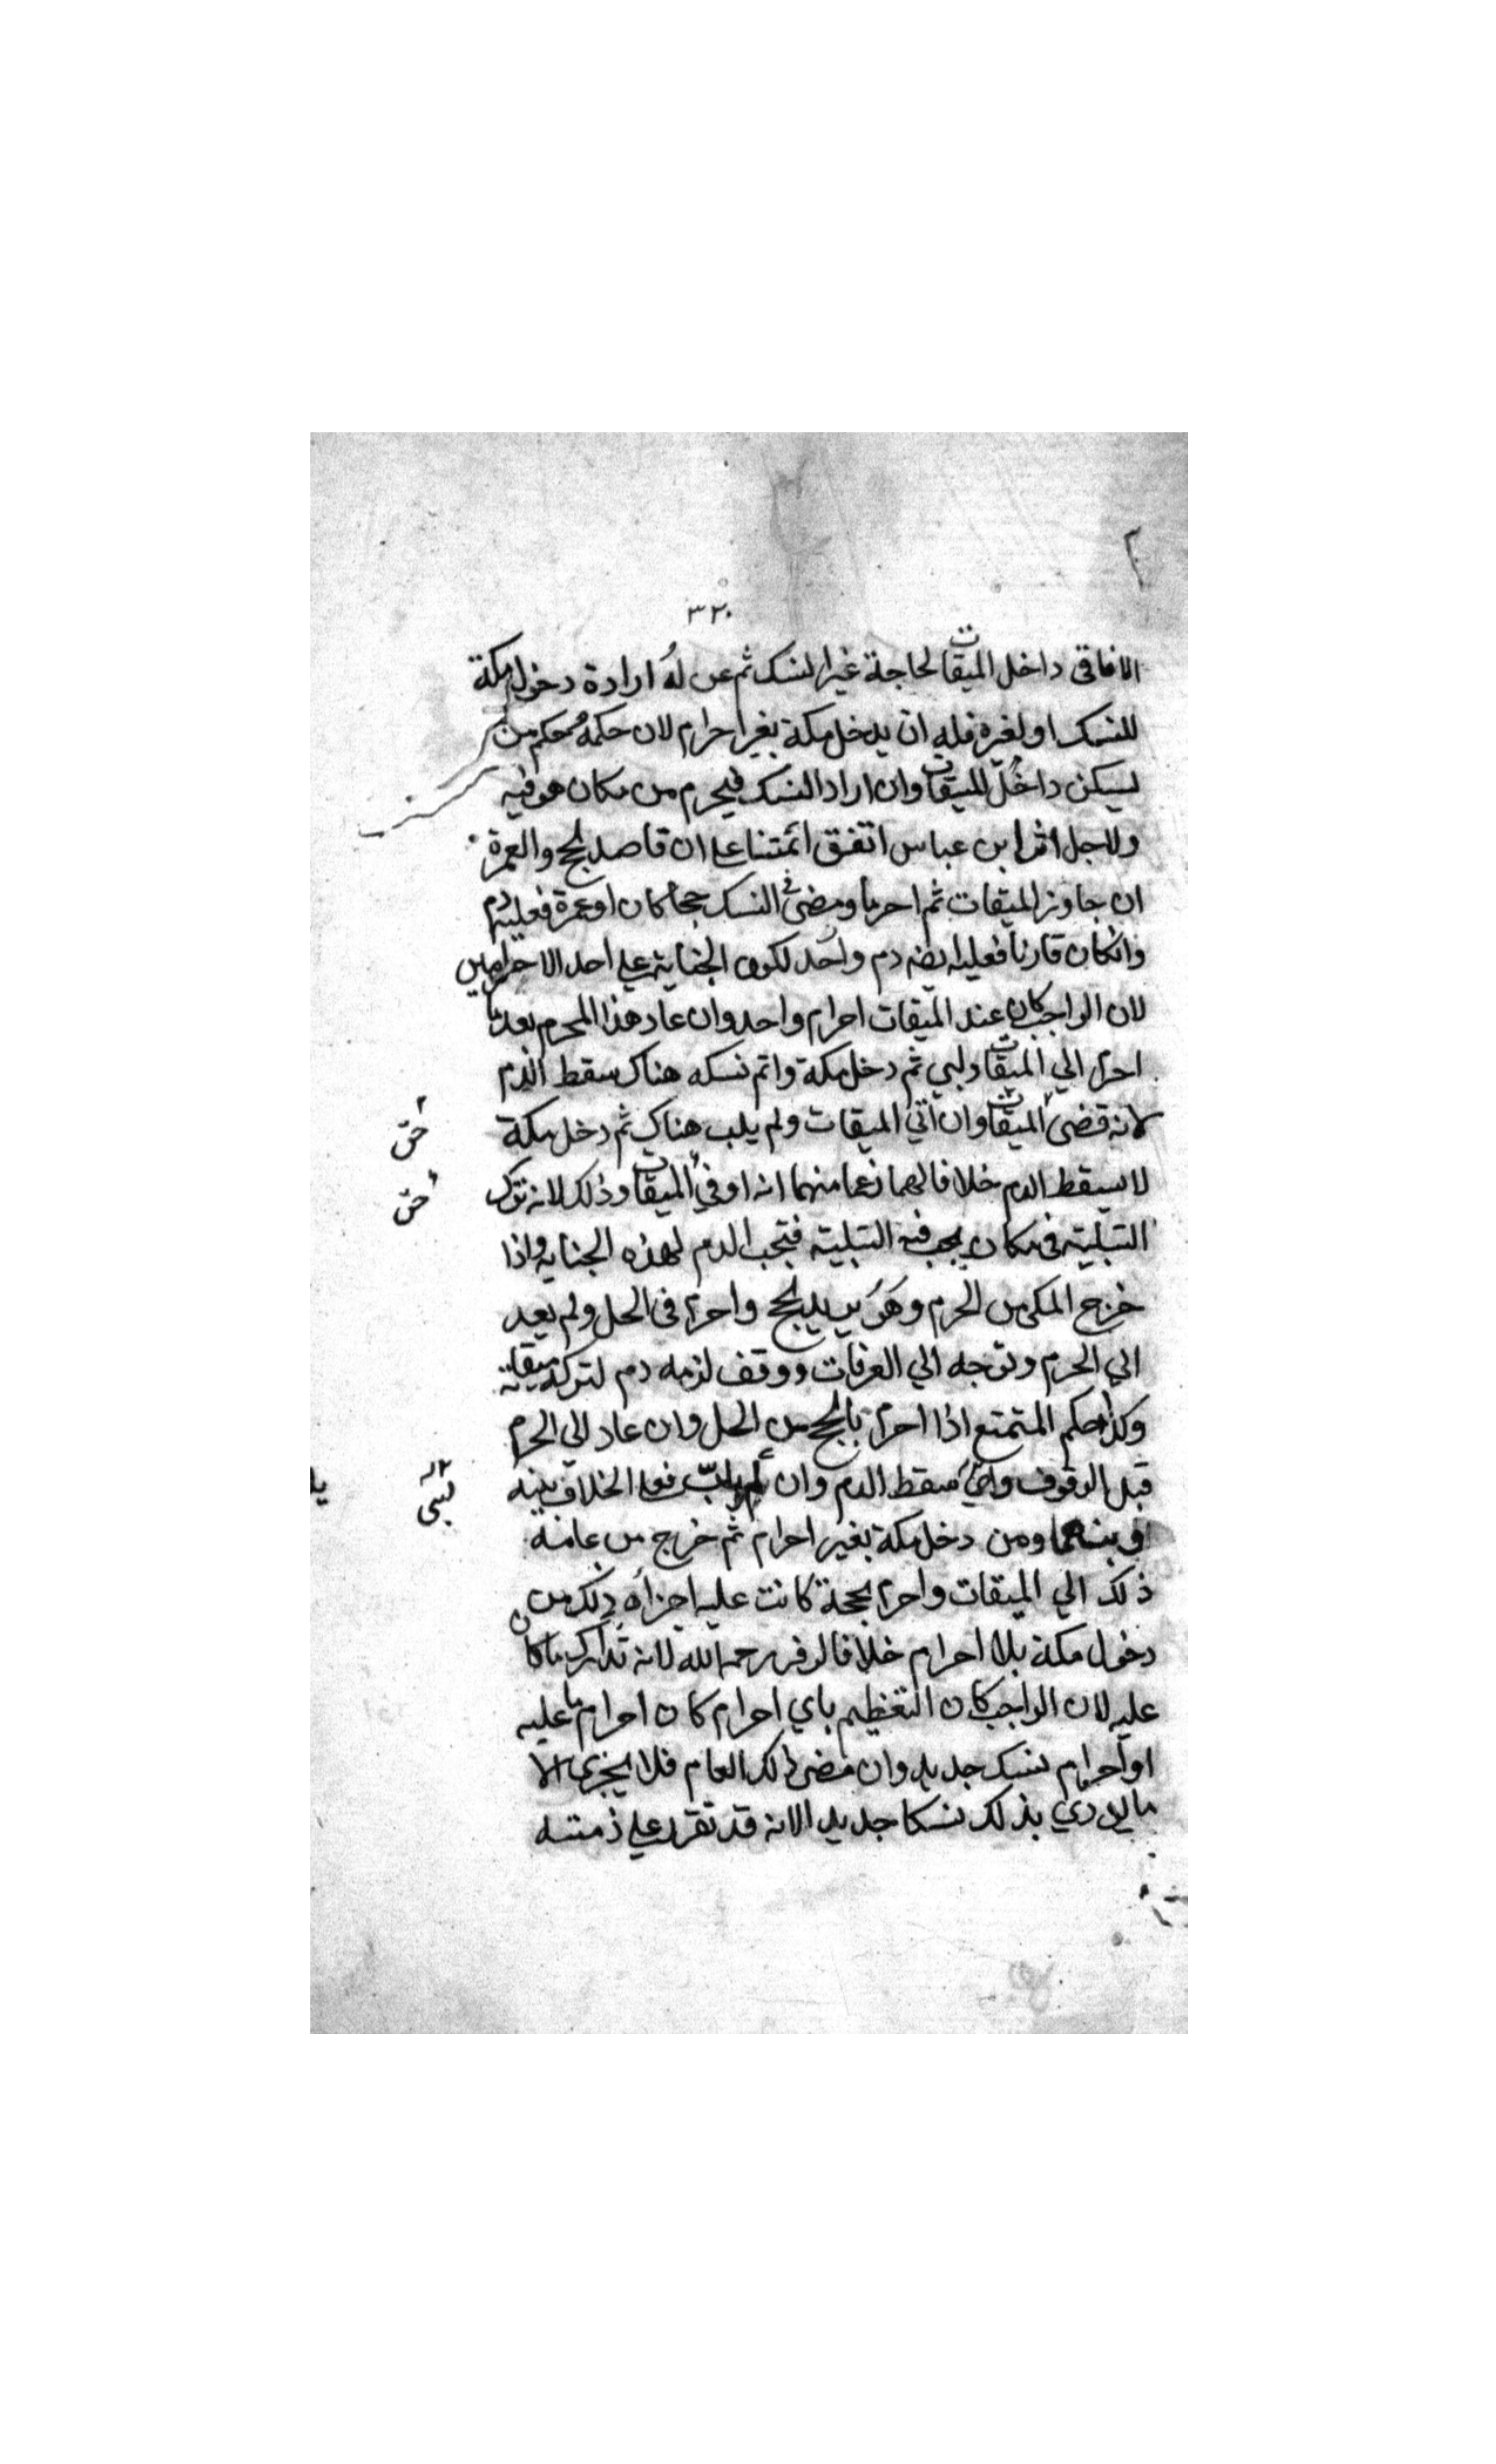 ٣٢٠
الافاقى داخل الميقات لحاجة غير النسك ثم عن له ارادة دخول مكة
للنسك او لغيره فله ان يدخل مكة بغير احرام لان حكمه حكم من
يسكن داخل الميقات وان اراد النسك فيحرم من مكان هو فيه
ولاجل اثر ابن عباس اتفق ائمتنا على ان قاصد الحج والعمرة
ان جاوز الميقات ثم احرم ومضى فى النسك حجا كان او عمرة فعليه دم
وان كان قارنا فعليه ايضه دم واحد لكون الجناية على احد الاحرامين
لان الواجب كان عند الميقات احرام واحد وان عاد هذا المحرم بعد ما
احرم الي الميقات ولبي ثم دخل مكة واتم نسكه هناك سقط الدم
لانه قضى الميقات وان اتي الميقات ولم يلب هناك ثم دخل مكة
حق
لا يسقط الدم خلافا لهما زعما منهما انه اوفي الميقات وذلك لانه ترك
حق
التلبية فى مكان يجب فيه التلبية فتجب الدم لهذه الجناية واذا
خرج المكى من الحرم وهو يريد الحج واحرم فى الحل ولم يعد
الي الحرم وتوجه الي العرفات ووقف لزمه دم لتركه ميقاته
وكذا حكم المتمتع اذا احرم بالحج من الحل وان عاد الي الحرم
قبل الوقوف سقط الدم وان لم يلب فعلى الخلاف بينه
لبى
وبينهما ومن دخل مكة بغير احرام ثم خرج من عامه
ذلك الي الميقات واحرم بحجة كانت عليه اجزاه ذلك من
دخول مكة بلا احرام خلافا لزفر رحمه الله لانه تدارك ما كان
عليه لان الواجب كان التعظيم باي احرام كان احرام ما عليه
او احرام نسك جديد وان مضى ذلك العام فلا يجزى الا
بذلك نسكا جديدا لانه قد تقرر على ذمته